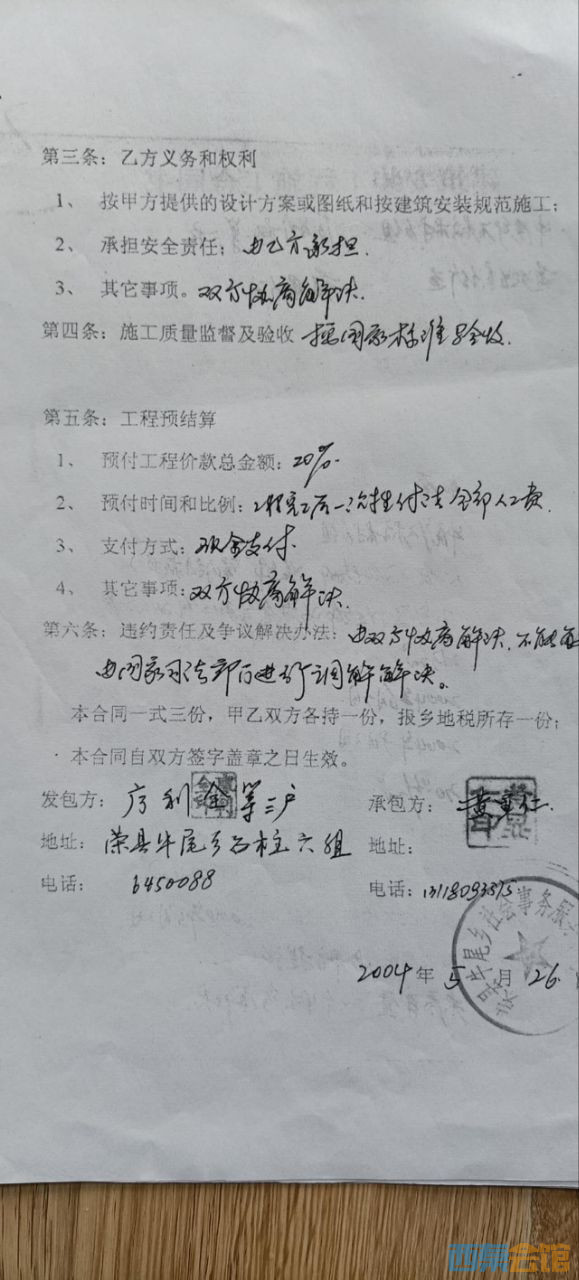 第三条：乙方义务和权利
1、 按甲方提供的设计方案或图纸和按建筑安装规范施工；
2、 承担安全责任；由乙方承担.
3、 其它事项。双方协商解决.
第四条：施工质量监督及验收 按国家标准验收.
第五条：工程预结算
1、 预付工程价款总金额：20%.
2、 预付时间和比例：工程完工后一次性付清全部人工费.
3、 支付方式：现金支付.
4、 其它事项：双方协商解决.
第六条：违约责任及争议解决办法：由双方协商解决.不能
由国家司法部门进行调解解决。
本合同一式三份，甲乙双方各持一份，报乡地税所存一份；
本合同自双方签字盖章之日生效。
发包方： 利金等三户 承包方：
地址： 荣县牛尾乡石柱六组 地址：
电话： 6450088 电话：
牛尾乡社会事务服
2004年5月26
西泵会馆